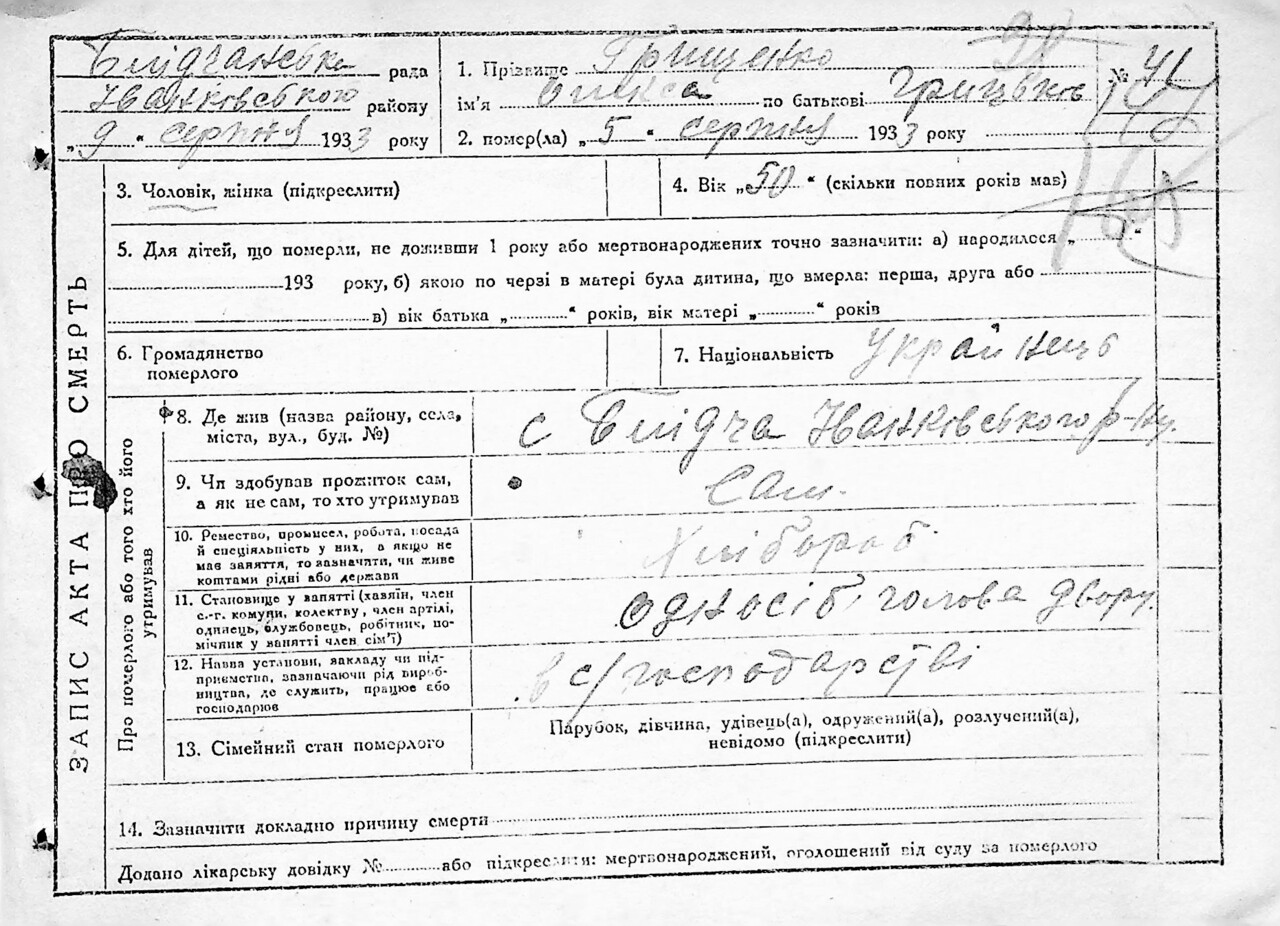 Блидчанська рада
Іванківського району
„9“ серпня 1933 року
1. Прізвище Грищенко № 41
ім'я Олекса по батькові Грицьків
2. помер(ла) „5“ серпня 1933 року
ЗАПИС АКТА ПРО СМЕРТЬ
3. Чоловік, жінка (підкреслити)
4. Вік „50“ (скільки повних років мав)
5. Для дітей, що померли, не доживши 1 року або мертвонароджених точно зазначити: а) народилося „ “
193 року, б) якою по черзі в матері була дитина, що вмерла: перша, друга або
в) вік батька „ “ років, вік матері „ “ років
6. Громадянство
померлого
7. Національність Украйнець
Про померлого або того хто його
утримував
8. Де жив (назва району, села,
міста, вул., буд. №)
с Блидча Іванківського р-ну.
9. Чи здобував прожиток сам,
а як не сам, то хто утримував
Сам.
10. Ремество, промисел, робота, посада
й спеціяльність у них, а якщо не
має заняття, то зазначити, чи живе
коштами рідні або держави
Хлібороб.
11. Становище у занятті (хазяїн, член
с.-г. комуни, колективу, член артілі,
одинець, службовець, робітник, по-
мічник у занятті член сім'ї)
односіб. голова двору.
12. Назва установи, закладу чи під-
приємства, зазначаючи рід вироб-
ництва, де служить, працює або
господарює
в с/господарстві
13. Сімейний стан померлого
Парубок, дівчина, удівець(а), одружений(а), розлучений(а),
невідомо (підкреслити)
14. Зазначити докладно причину смерти
Додано лікарську довідку № або підкреслити: мертвонароджений, оголошений від суду за померлого